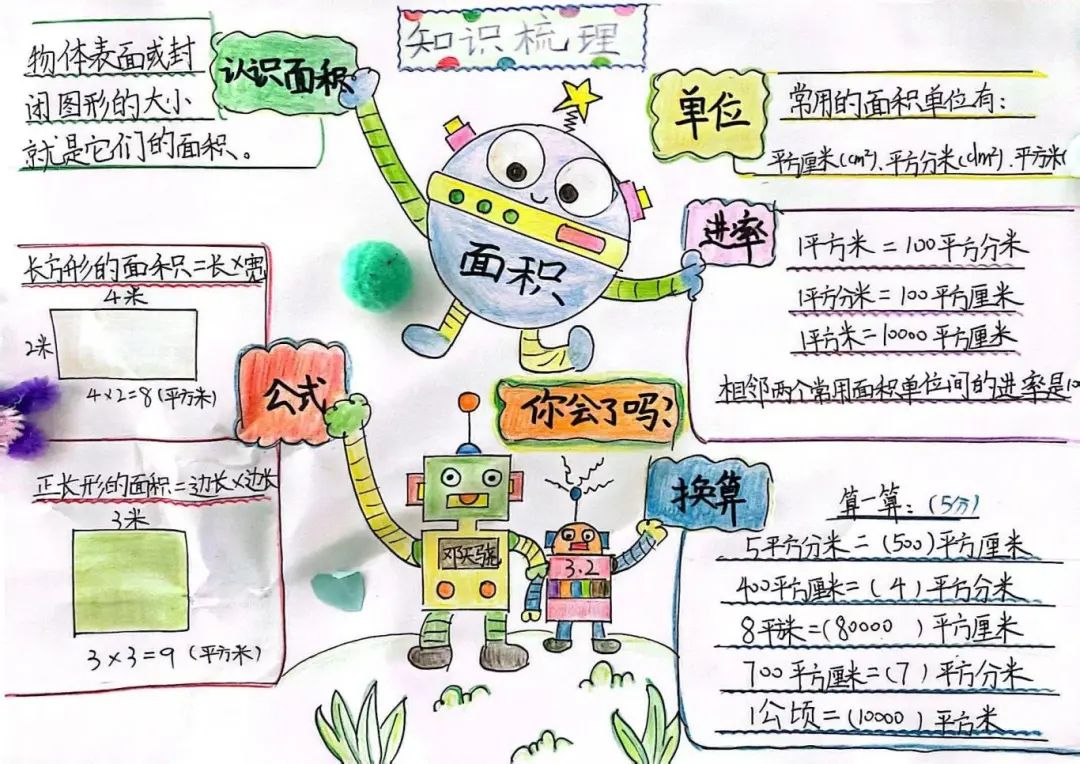 知识梳理
认识面积
物体表面或封
闭图形的大小
就是它们的面积。
单位
常用的面积单位有：
平方厘米(cm²)、平方分米(dm²)、平方米(
面积
进率
1平方米=100平方分米
1平方分米=100平方厘米
1平方米=10000平方厘米
相邻两个常用面积单位间的进率是10
公式
长方形的面积=长×宽
4米
2米
4×2=8(平方米)
正长形的面积=边长×边长
3米
3×3=9(平方米)
你会了吗?
换算
算一算：(5分)
5平方分米=(500)平方厘米
400平方厘米=(4)平方分米
8平米=(80000)平方厘米
700平方厘米=(7)平方分米
1公顷=(10000)平方米
3.2